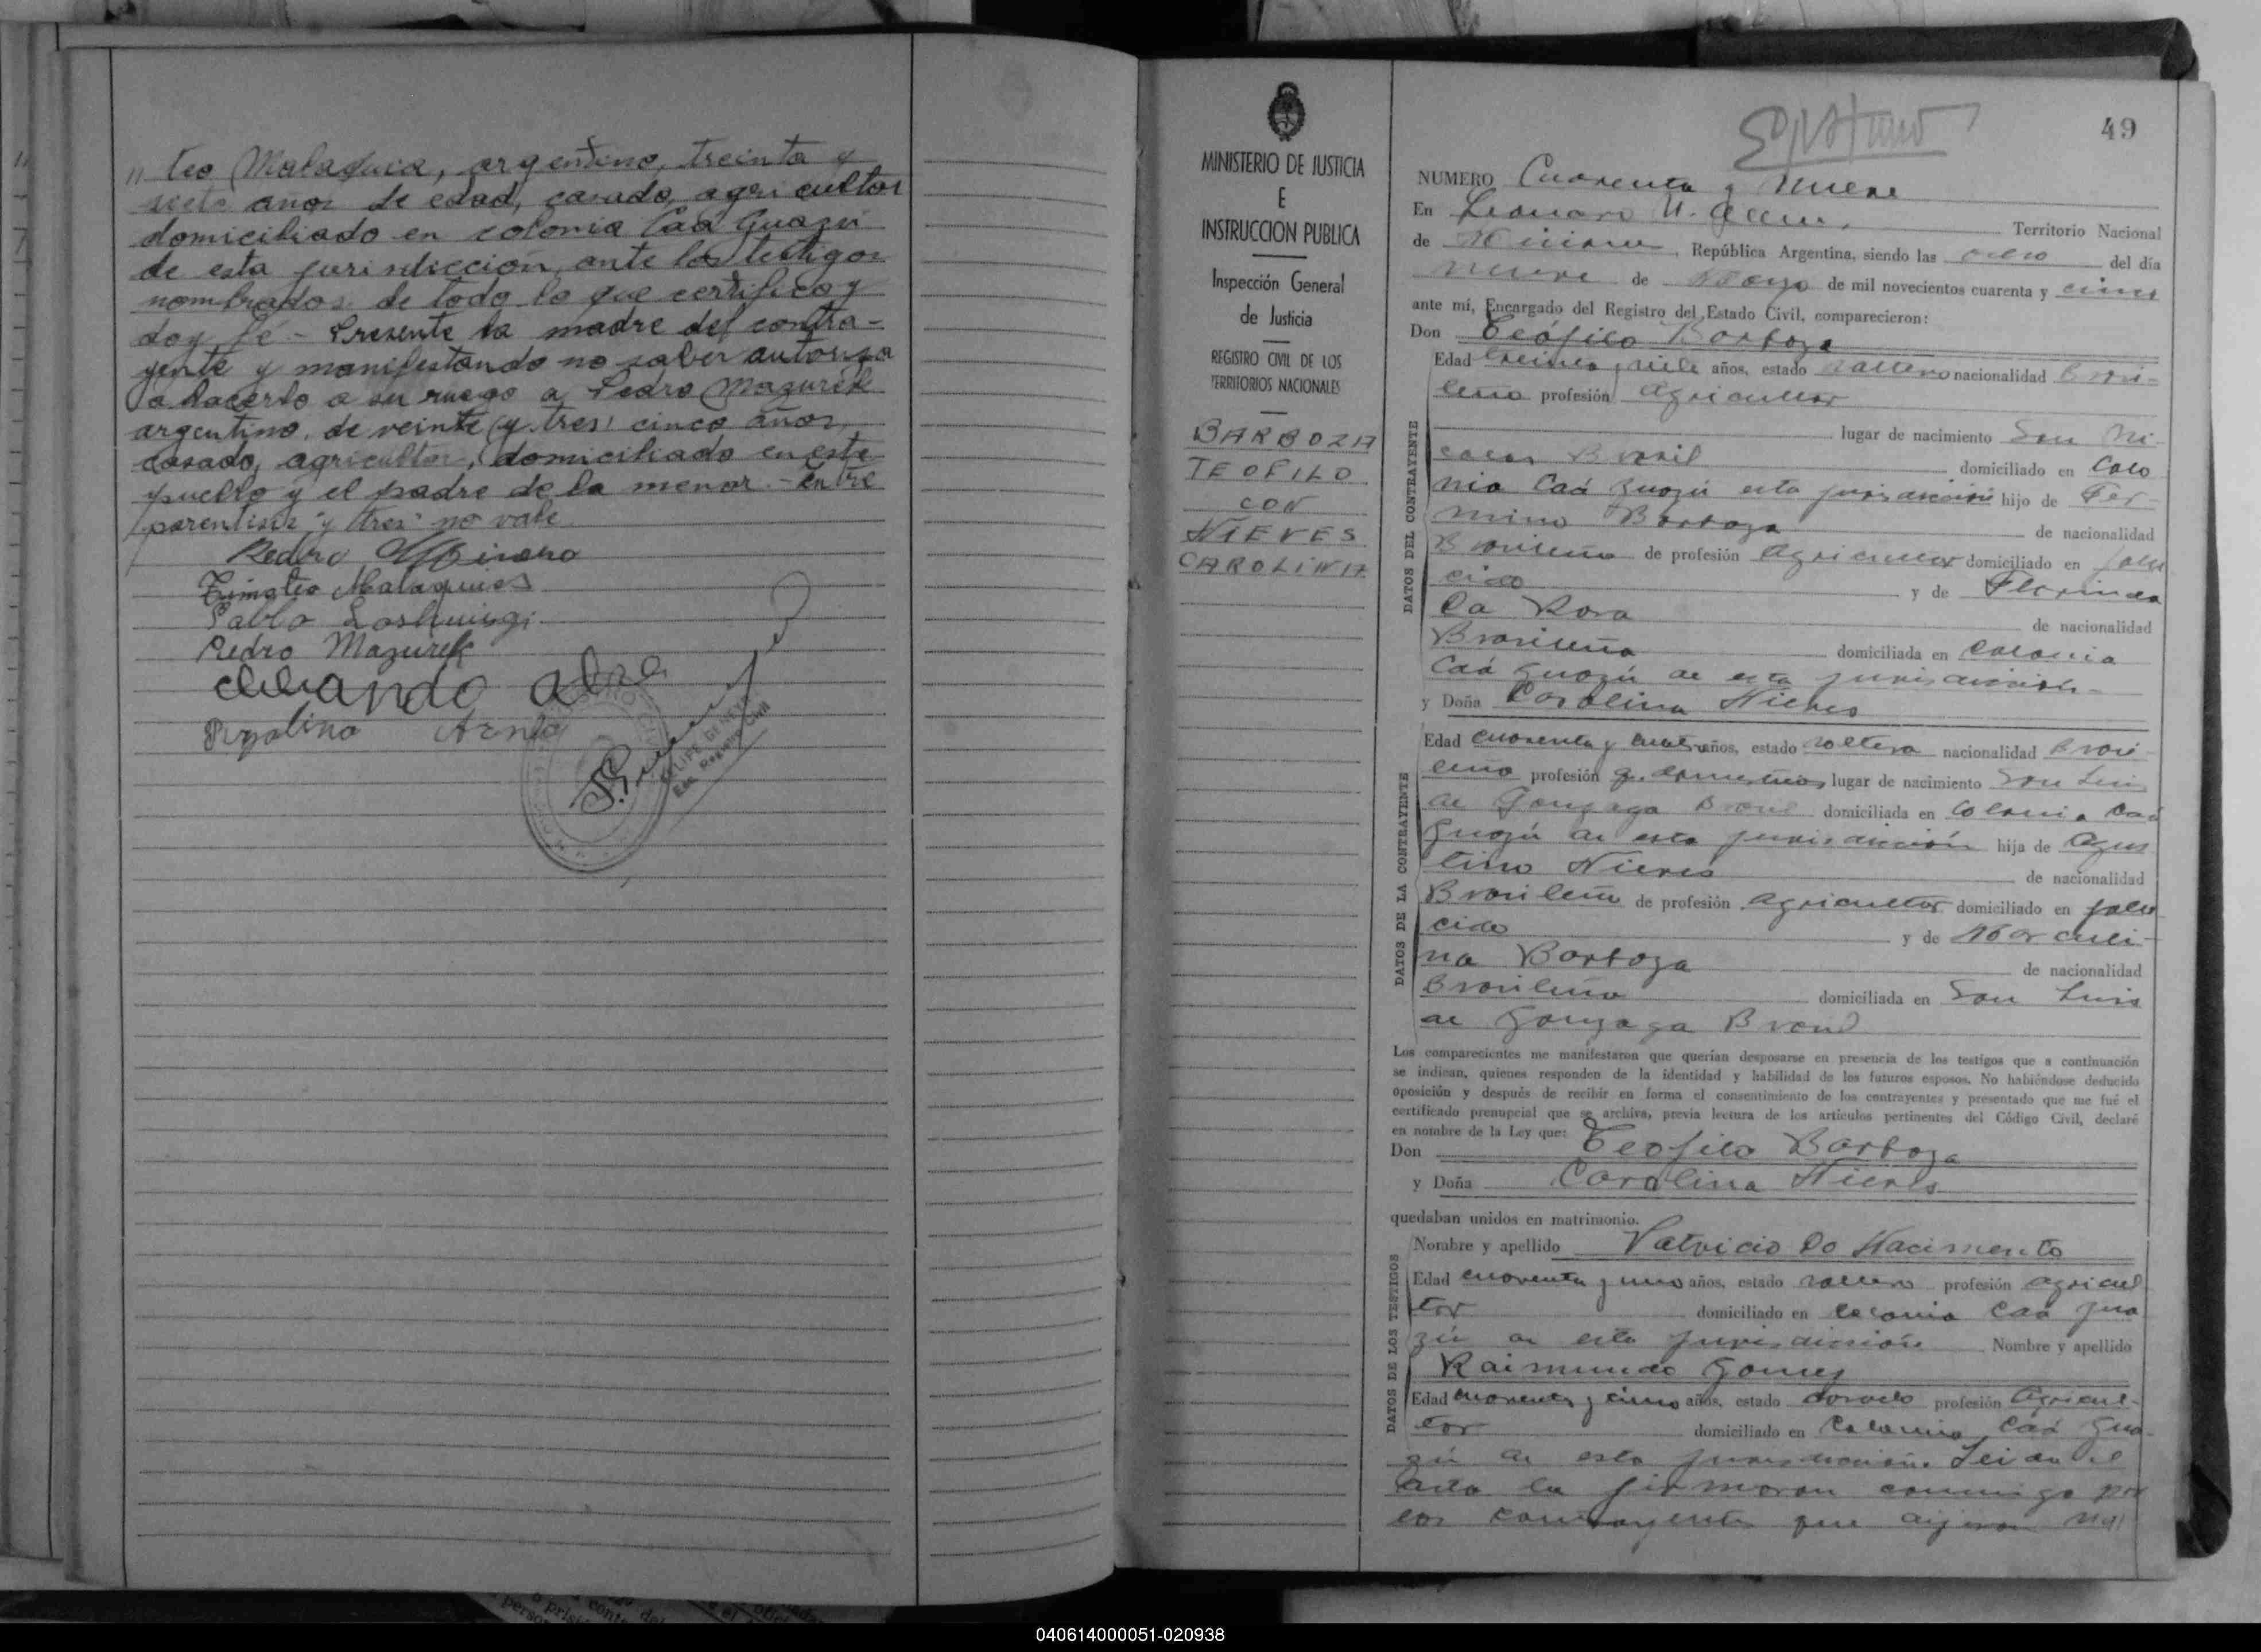 " teo Malaquia, argentino, treinta y
siete años de edad, casado, agricultor
domiciliado en colonia Caá Guazú
de esta jurisdiccion, ante los testigos
nombrados de todo lo que certifico y
doy fé - Presente la madre del contra-
yente y manifestando no saber autoriza
a hacerlo a su ruego a Pedro Mazurek
argentino, de veinte (y tres) cinco años,
casado, agricultor, domiciliado en este
pueblo y el padre de la menor. - Entre
parentisis "y tres" no vale.
Pedro
Timoteo Malaquias
Pablo
Pedro Mazurek
FELIPE
Enc. Registro Civil
49
MINISTERIO DE JUSTICIA
E
INSTRUCCION PUBLICA
Inspección General
de Justicia
REGISTRO CIVIL DE LOS
TERRITORIOS NACIONALES
BARBOZA
TEOFILO
CON
NIEVES
CAROLINA
NUMERO Cuarenta y Nueve
En Leandro N. Alem, Territorio Nacional
de Misiones, República Argentina, siendo las ocho del día
nueve de Mayo de mil novecientos cuarenta y cinco
ante mí, Encargado del Registro del Estado Civil, comparecieron:
Don Teófilo Barboza
Edad treinta y siete años, estado soltero nacionalidad Brasi-
leña profesión agricultor
lugar de nacimiento San Ni-
colas Brasil domiciliado en Colo
nia Caá Guazú esta jurisdicción hijo de Fer-
mino Barboza de nacionalidad
Brasileña de profesión Agricultor domiciliado en falle
cido y de Florinda
Da Rosa de nacionalidad
Brasileña domiciliada en Colonia
Caá Guazú de esta jurisdicción-
y Doña Carolina Nieves
DATOS DEL CONTRAYENTE
Edad cuarenta y cuatro años, estado soltera nacionalidad Brasi-
leña profesión q. domesticos lugar de nacimiento San Luis
de Gonzaga Brasil domiciliada en Colonia Caá
Guazú de esta jurisdicción hija de Agus
tino Nieves de nacionalidad
Brasileña de profesión Agricultor domiciliado en falle
cido y de Marculi-
na Barboza de nacionalidad
Brasileña domiciliada en San Luis
de Gonzaga Brasil
DATOS DE LA CONTRAYENTE
Los comparecientes me manifestaron que querían desposarse en presencia de los testigos que a continuación
se indican, quienes responden de la identidad y habilidad de los futuros esposos. No habiéndose deducido
oposición y después de recibir en forma el consentimiento de los contrayentes y presentado que me fué el
certificado prenupcial que se archiva, previa lectura de los artículos pertinentes del Código Civil, declaré
en nombre de la Ley que:
Don Teofilo Barboza
y Doña Carolina Nieves
quedaban unidos en matrimonio.
Nombre y apellido Patricio Do Nacimento
Edad cuarenta y uno años, estado soltero profesión agricul
tor domiciliado en Colonia Caá Gua
zú de esta jurisdicción Nombre y apellido
Raimundo Gomez
Edad cuarenta y cinco años, estado casado profesión Agricul-
tor domiciliado en Colonia Caá Gua-
zú de esta jurisdicción. Leida el
acta la firmaron conmigo por
los contrayentes que dijeron no
DATOS DE LOS TESTIGOS
040614000051-020938